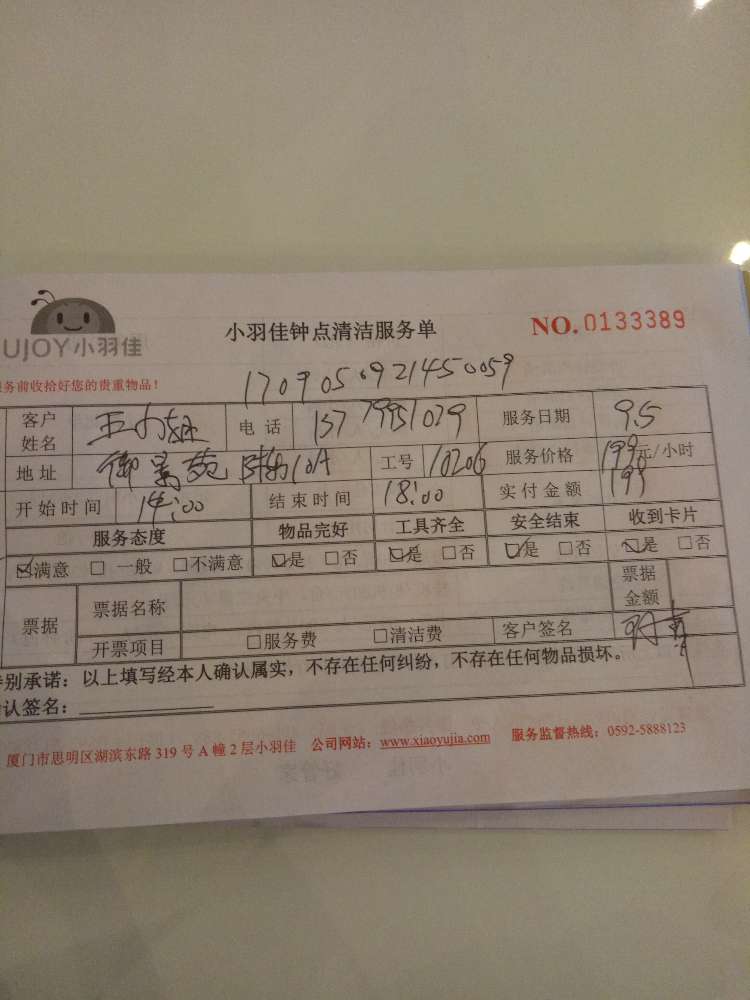 UJOY小羽佳
小羽佳钟点清洁服务单
NO.0133389
务前收拾好您的贵重物品！
1709050921450059
客户姓名 电话 服务日期 9.5
地址 御景苑 工号 10206 服务价格 199元/小时
开始时间 14:00 结束时间 18:00 实付金额 199
服务态度 物品完好 工具齐全 安全结束 收到卡片
☑满意 □ 一般 □不满意 ☑是 □否 ☑是 □否 ☑是 □否 ☑是 □否
票据 票据名称 票据金额
开票项目 □服务费 □清洁费 客户签名
别承诺：以上填写经本人确认属实，不存在任何纠纷，不存在任何物品损坏。
认签名：
厦门市思明区湖滨东路 319 号 A 幢 2 层小羽佳 公司网站：www.xiaoyujia.com 服务监督热线：0592-5888123